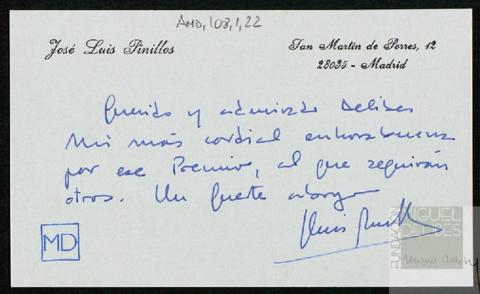 AMD,108,1,22
José Luis Pinillos
San Martín de Porres, 12
28035 - Madrid
Querido y admirado Delibes
Mi más cordial enhorabuena
por ese Premio, al que seguirán
otros. Un fuerte abrazo
MD
FUNDACIÓN
MIGUEL
DELIBES